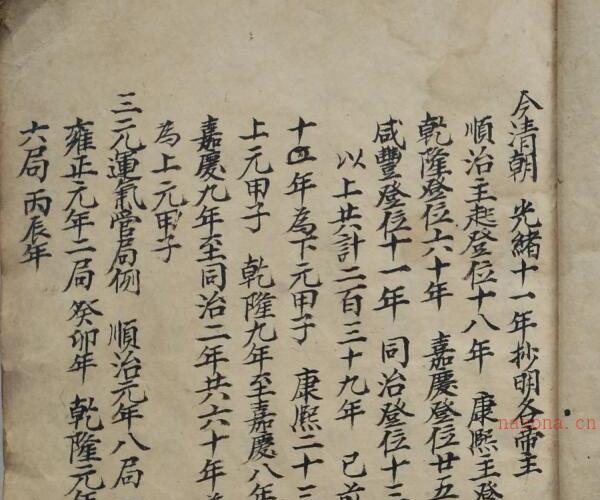 今清朝 光緒十一年抄明各帝主
順治主起登位十八年 康熙主登
乾隆登位六十年 嘉慶登位廿五
咸豐登位十一年 同治登位十三
以上共計二百三十九年 已前
十四年為下元甲子 康熙二十三
上元甲子 乾隆九年至嘉慶八年
嘉慶九年至同治二年共六十年
為上元甲子
三元運氣管局例 順治元年八局
雍正元年二局 癸卯年 乾隆元年
六局 丙辰年
nayona.cn